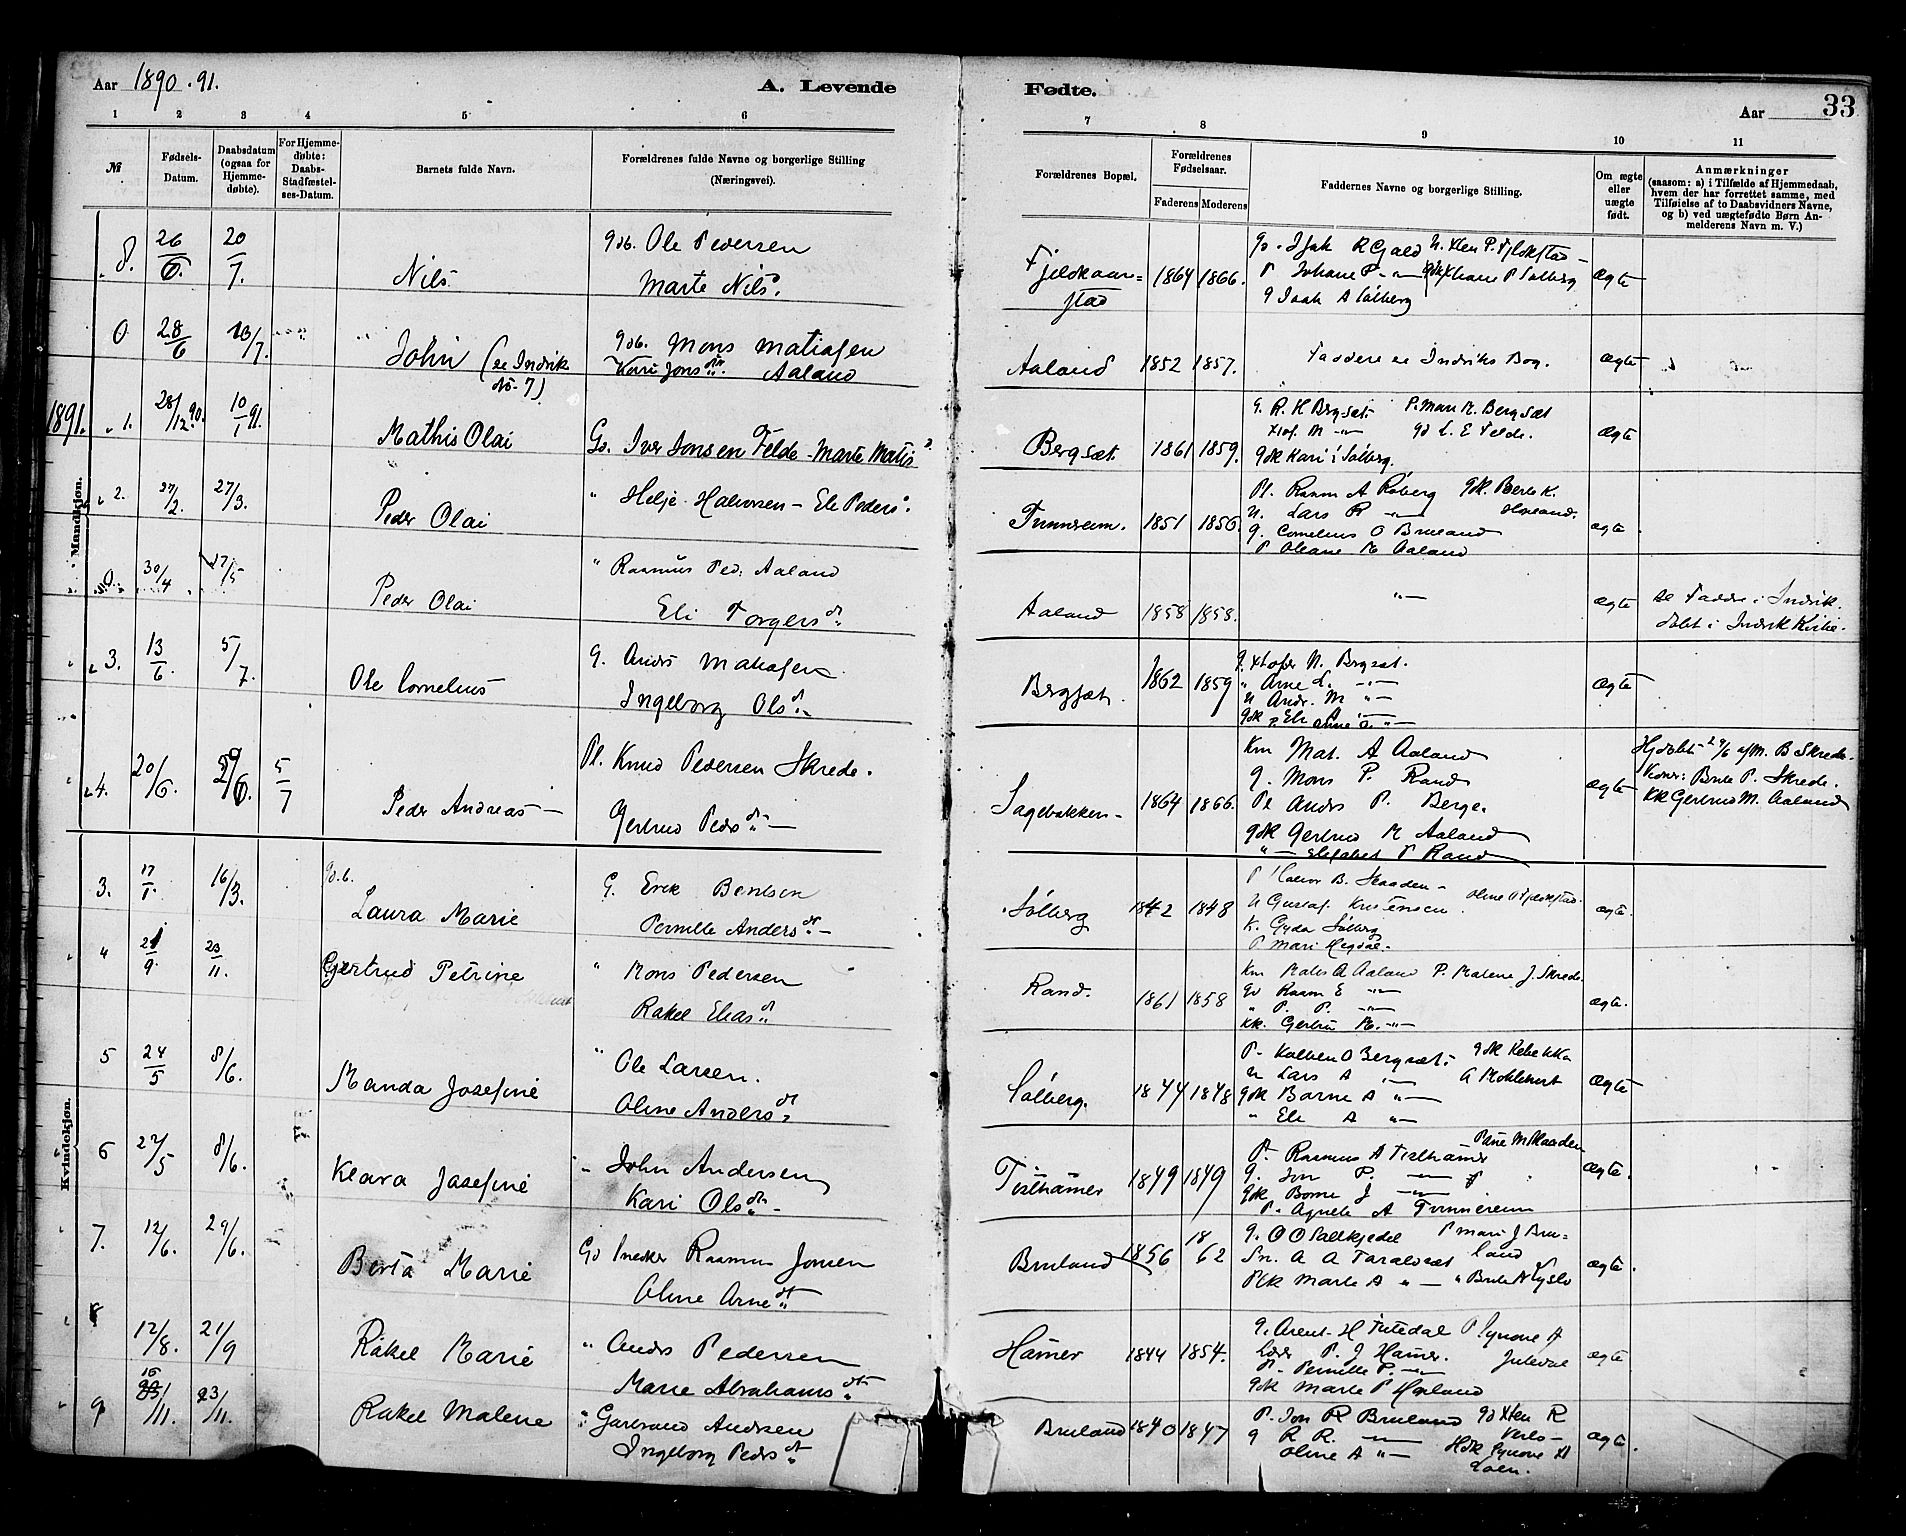 Aar 1890.91.
A. Levende
Fødte.
Aar
33
1 2 3 4 5 6 7 8 9 10 11
№
Fødsels-
Datum.
Daabsdatum
(ogsaa for
Hjemme-
døbte).
For Hjemme-
døbte:
Daabs-
Stadfæstel-
ses-Datum.
Barnets fulde Navn.
Forældrenes fulde Navne og borgerlige Stilling
(Næringsvei).
Forældrenes Bopæl.
Forældrenes
Fødselsaar.
Faderens Moderens
Faddernes Navne og borgerlige Stilling.
Om ægte
eller
uægte
født.
Anmærkninger
(saasom: a) i Tilfælde af Hjemmedaab,
hvem der har forrettet samme, med
Tilføielse af to Daabsvidners Navne,
og b) ved uægtefødte Børn An-
melderens Navn m. V.)
8. 26/6. 20/7. Nils
Ole Pedersen
Marte Nils
Fjeldkaar=
stad
1864 1866.
Ægte
0 28/6 13/7. John (se Indvik
No. 7)
Mons Matiasen
Kari Jonsdtr. Aaland
Aaland 1852 1857.
Faddere se Indviks Bog.
Ægte
1891. 1. 28/12 90. 10/1 91. Mathis Olai
G. Iver Jonsen Felde - Marte Matis
Bergsæt. 1861 1859.
G. R. H Bergsæt P. Mari M. Bergsæt
gdk Kari i Sølberg.
Ægte
Mandkjøn.
2. 27/2. 27/3. Peder Olai
" Helje Halvorsen - Eli Peders
Tunnreim. 1851 1856.
Pl. Rasm A Røberg gdk. Berte K.
u. Lars R -"- Hoveland.
g. Cornelius O Bruland
P Oleane M Aaland
ægte
0. 30/4 17/5 Peder Olai
" Rasmus Ped. Aaland
Eli Torgersd.
Aaland 1858 1858.
-"-
Ægte
Se Faddre i Indvik.
døbt i Indvik Kirke.
3. 13/6. 5/7. Ole Cornelius
g. Anders Matiasen
Ingeborg Olsd.
Bergset. 1862 1859
g. Xtofer N. Bergset.
" Arne L. -"-
u Andr. M "-
Ægte
4. 20/6. 29/6. 5/7 Peder Andreas
Pl. Knud Pedersen Skrede.
Gertrud Pedsd.
Sagebakken 1864 1866.
Km Mat. A Aaland
g. Mons P. Rand
Pl Anders P. Berge
gdk Gertrud M Aaland
" Elisabet P Rand
ægte
Hjdøbt 29/6 af M. B Skrede.
Vidner: Brite P. Skrede.
KK Gertrud M. Aaland
Kvindekjøn.
3. 17/1. 16/3. Laura Marie
G. Erik Bentsen
Pernille Andersdt.
Sølberg 1842 1848
P Halvor B. Skaaden
u Gustaf Kristensen. Oline O Fjeldstad
K. Gyda Sølberg
P Mari Hegdal.
ægte.
4 21/9. 23/11. Gertrud Petrine
" Mons Pedersen
Rakel Eliasd.
Rand. 1861 1858
Km Mats A Aaland P. Malene J. Skrede.
go Rasm E -"-
" P. P. -"-
KK. Gertru M. -"-
Ægte.
5 24/5 8/6. Manda Josefine
" Ole Larsen.
Oline Andersdt.
Sølberg. 1844 1848
P. Kolben O Bergsæt. gdk Rebekka
u Lars A -"- A Moklebust
gdk Barne A "-
" Eli A "-
Ægte
6 27/5 8/6. Klara Josefine
" John Andersen
Kari Olsdtr.
Tislhamer 1849 1849
P. Rasmus A Tislhamer
g. Jon P. -"-
gdk Borne J -"-
P. Agnete A Tunnereim
ægte.
7. 12/6. 29/6. Berta Marie
Gd Snedker Rasmus Jonsen
Oline Arnedt.
Bruland 1856 1862
g. O O Sættjedel P Mari J Bru-
Sn. A A Taraldset land
Pdk Marte A "-
ægte.
8 12/8. 21/9 Rakel Marie
" Anders Pedersen
Marie Abrahamsdtr.
Hamer 1844 1854.
g. Arent H Futedal P. Synove A
Lærer P. J Hamer. Futedal
P. Pernille P. -"-
gdk Marte P Hogland
ægte
9 15/11. 23/11. Rakel Malene
" Gertrand Andrsen
Ingeborg Pedsdt.
Bruland 1840 1847
P. Jon R Bruland gd Xten R
g R R. -"-
Oline A "- Hdk Synove A
Loen.
ægte.